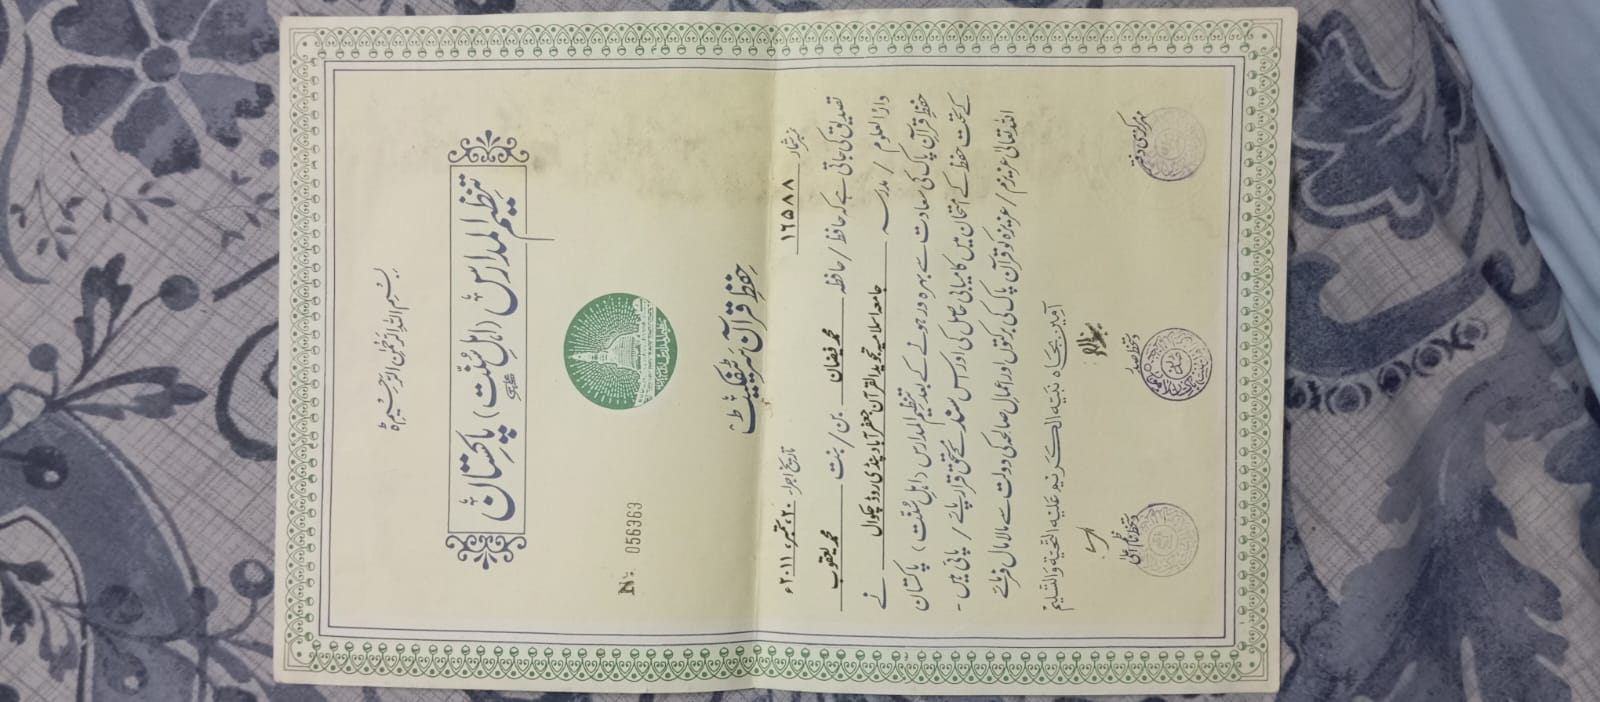 بسم الله الرحمن الرحيم
تنظیم المدارس (اہل سُنّت) پاکستان
№ 056363
حفظِ قرآن سرٹیفکیٹ
نمبر شمار ۱۶۵۸۸ تاریخ اجراء ۲۰، ستمبر، ۲۰۱۱ء
تصدیق کی جاتی ہے کہ حافظ / حافظہ محمد فیضان بن / بنت محمد یعقوب
دارالعلوم / مدرسہ جامعہ اسلامیہ تجوید القرآن جعفر آباد پنڈی روڈ چکوال نے
حفظِ قرآن پاک کی سعادت سے بہرہ ور ہونے کے بعد تنظیم المدارس (اہلِ سُنّت) پاکستان
کے تحت حفظ کے امتحان میں کامیابی حاصل کی اور اس سند کے مستحق قرار پائے / پائی ہیں۔
اللہ تعالیٰ عزیزم / عزیزہ کو قرآن پاک کی برکتوں اور اعمالِ صالحہ کی دولت سے مالا مال فرمائے
آمین بجاہ نبیہ الکریم علیہ التحیۃ والتسلیم
مہر مرکزی دفتر
دستخط صدر
دستخط ناظم اعلیٰ